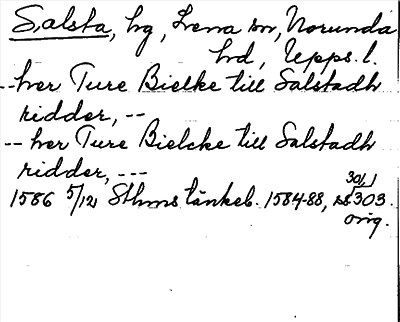 Salsta, hg, Lena sn, Norunda
hd, Upps. l.
--her Ture Bielke till Salstadh
ridder, --
-- her Ture Bielcke till Salstadh
ridder, ---
1586 5/12 Sthms tänkeb. 1584-88, s 303.
orig.